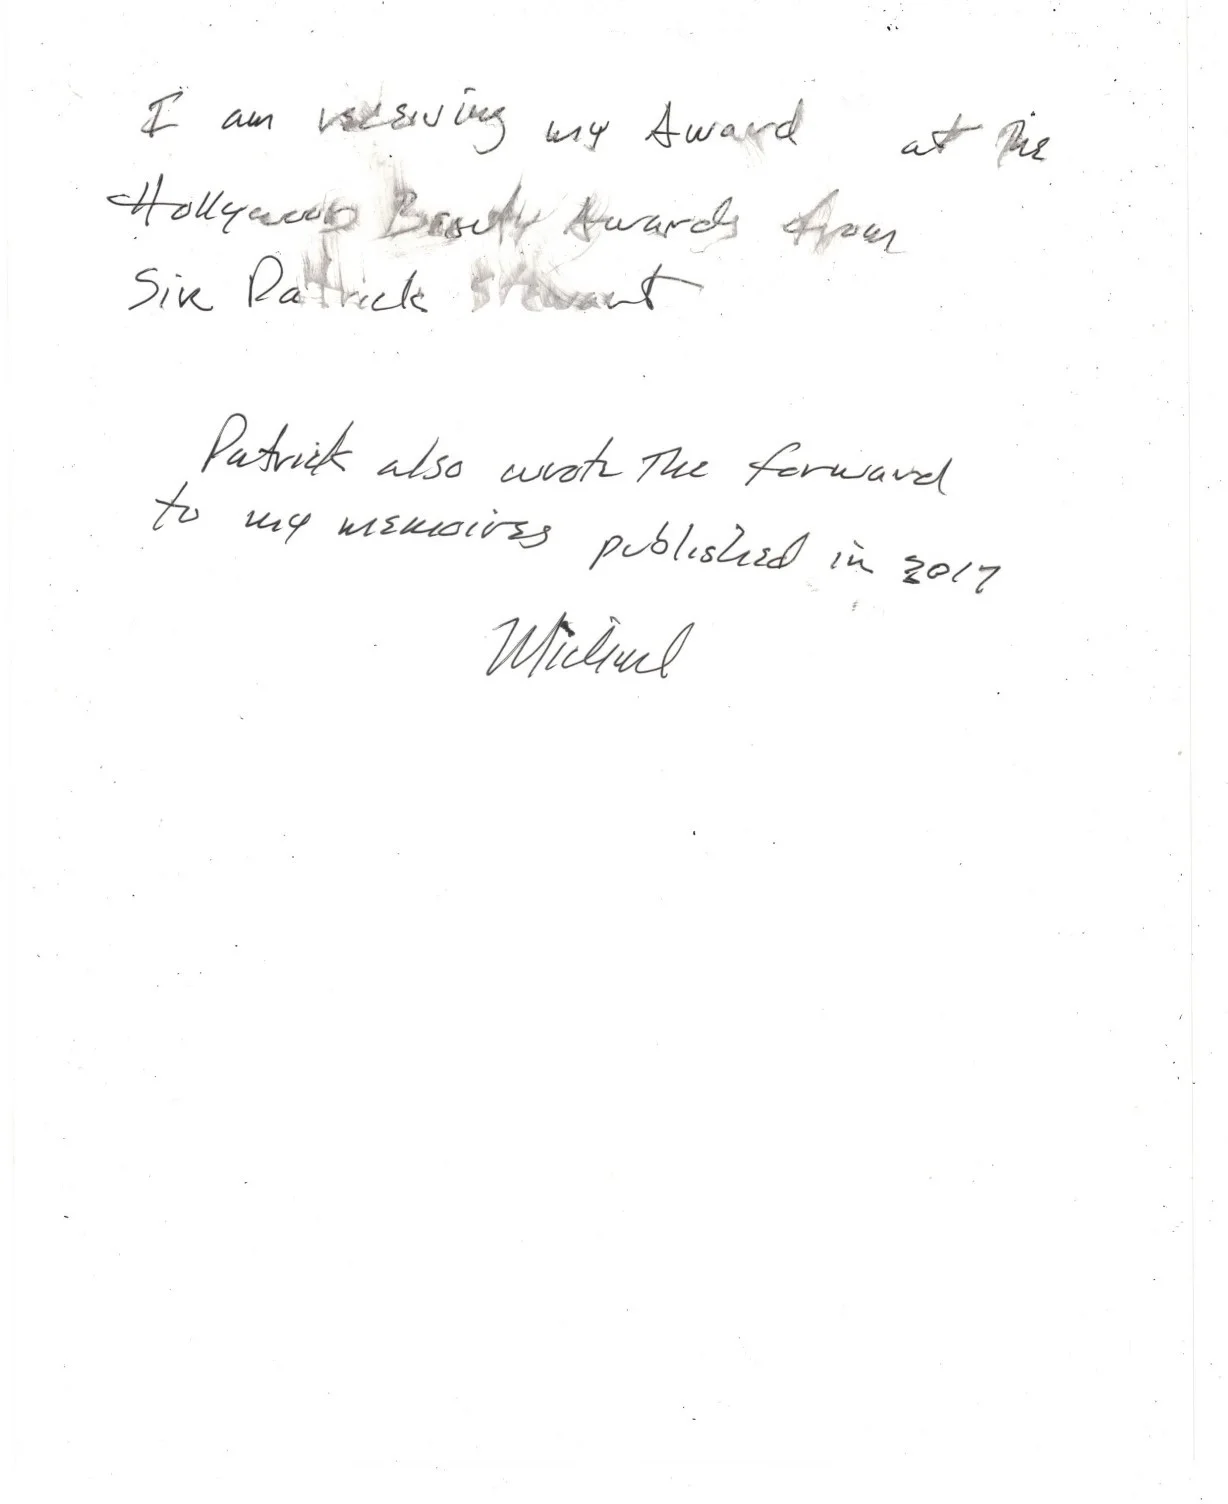 I am receiving my Award at The
Hollywood Beauty Awards from
Sir Patrick Stewart
Patrick also wrote The forward
to my memoires published in 2017
Michael